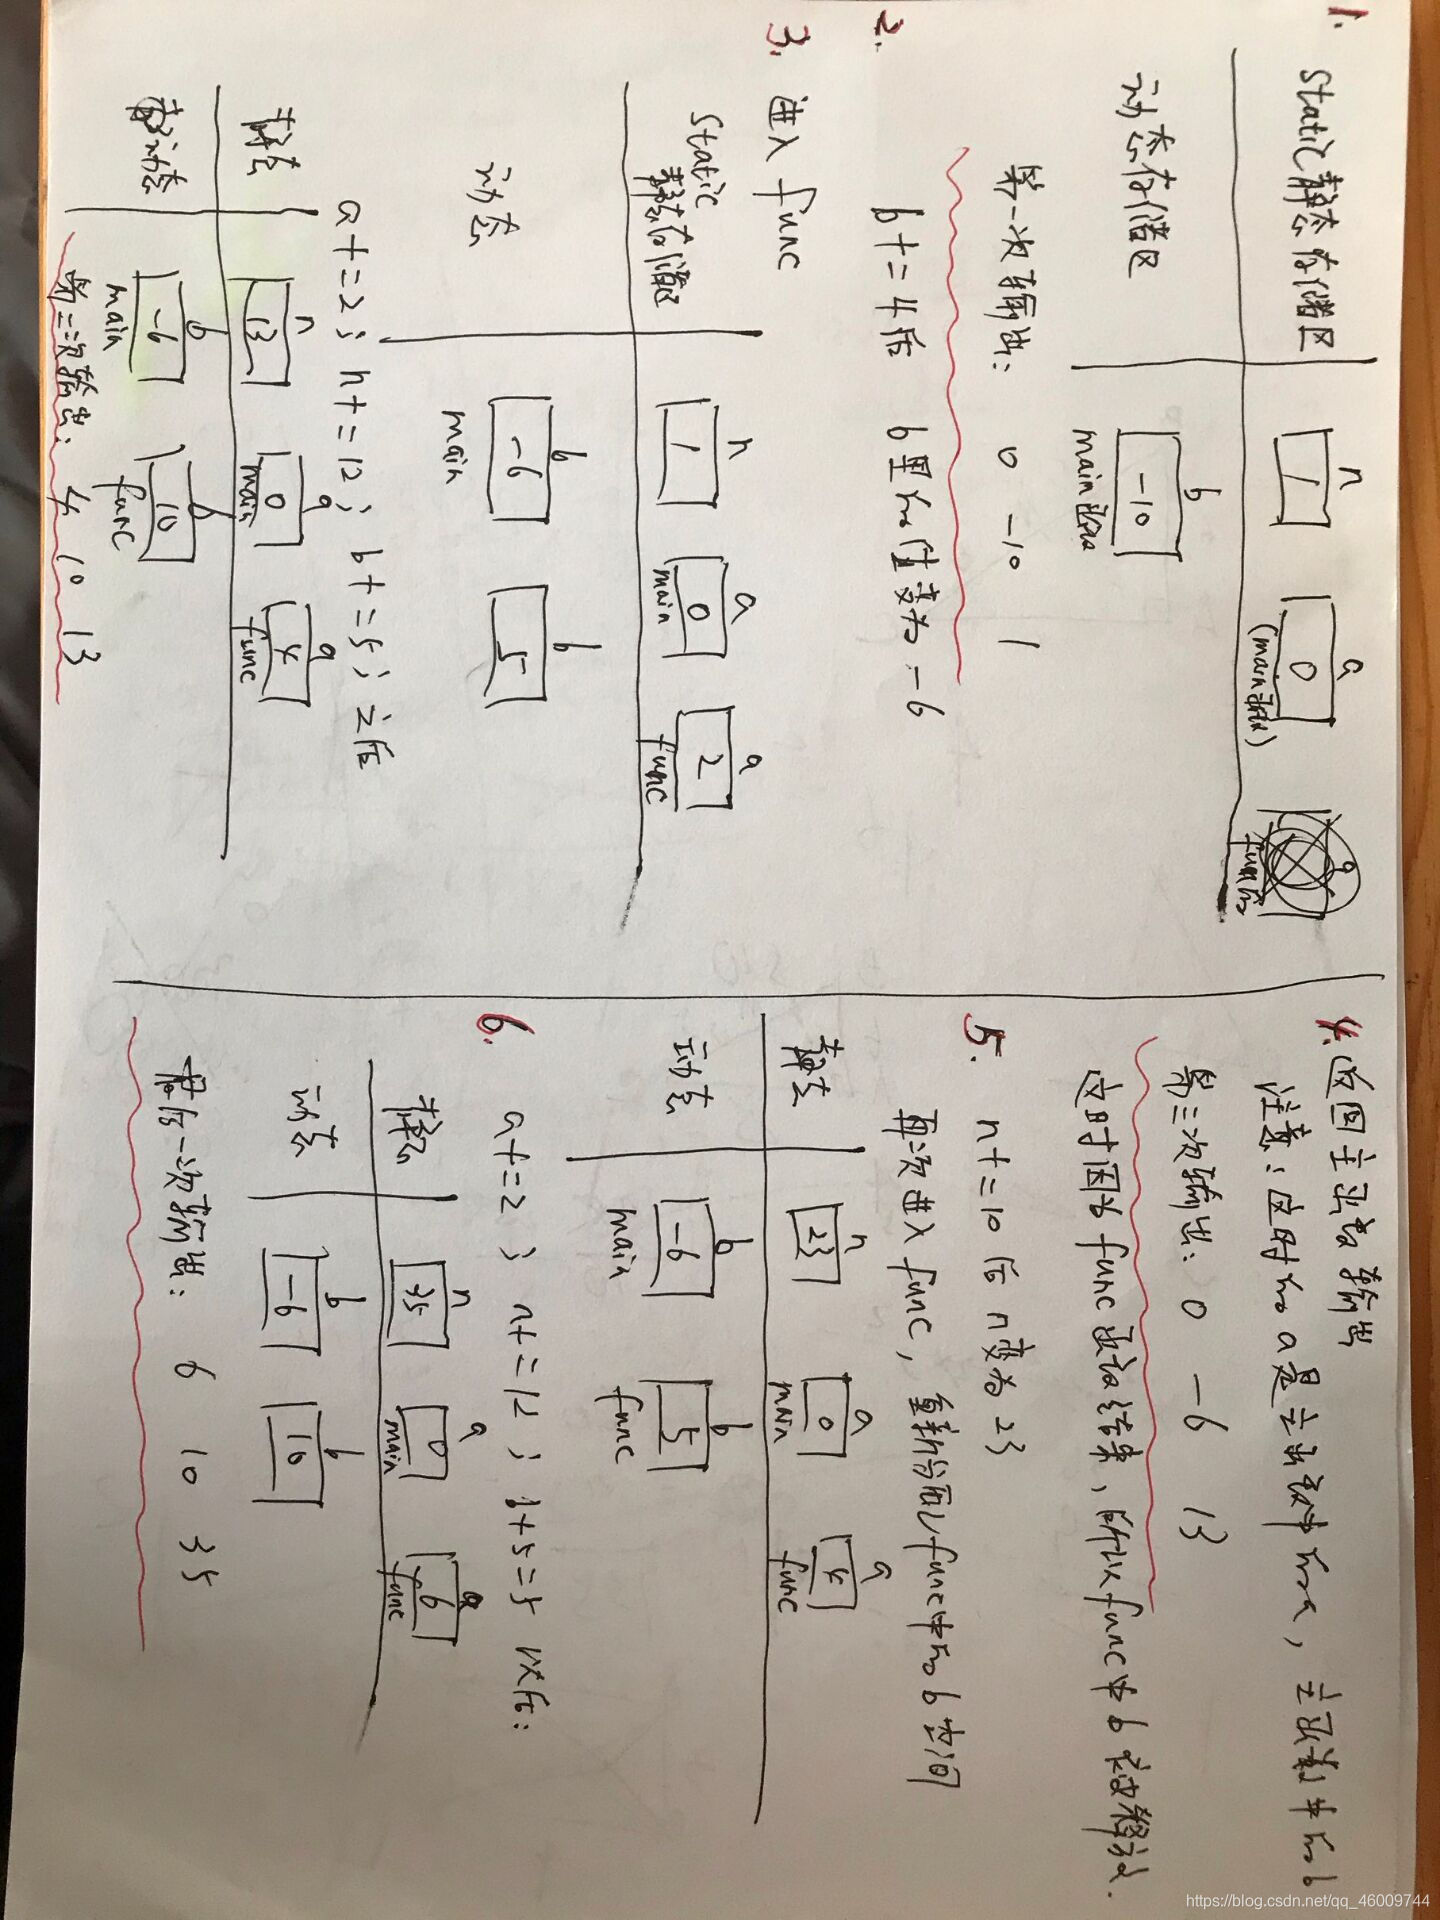 1.
static静态存储区
n
1
a
0
(main函数)
a
func的
动态存储区
b
-10
main函数
第一次输出: 0 -10 1
2.
b+=4后 b里的值变为-6
3. 进入func
static
静态存储区
n
1
a
0
main
a
2
func
动态
b
-6
main
b
5
a+=2; n+=12; b+=5; 之后
静态
n
13
a
0
main
a
4
func
动态
b
-6
main
b
10
func
第二次输出: 4 10 13
4. 返回主函数输出
注意:这时的a是主函数中的a,主函数中的b
第三次输出: 0 -6 13
这时因为func函数结束,所以func中b空间释放.
5. n+=10后 n变为23
再次进入func,重新分配func中的b空间
静态
n
23
a
0
main
a
4
func
动态
b
-6
main
b
5
func
6. a+=2; n+=12; b+5=5 以后:
静态
n
35
a
0
main
a
6
func
动态
b
-6
b
10
最后一次输出: 6 10 35
https://blog.csdn.net/qq_46009744